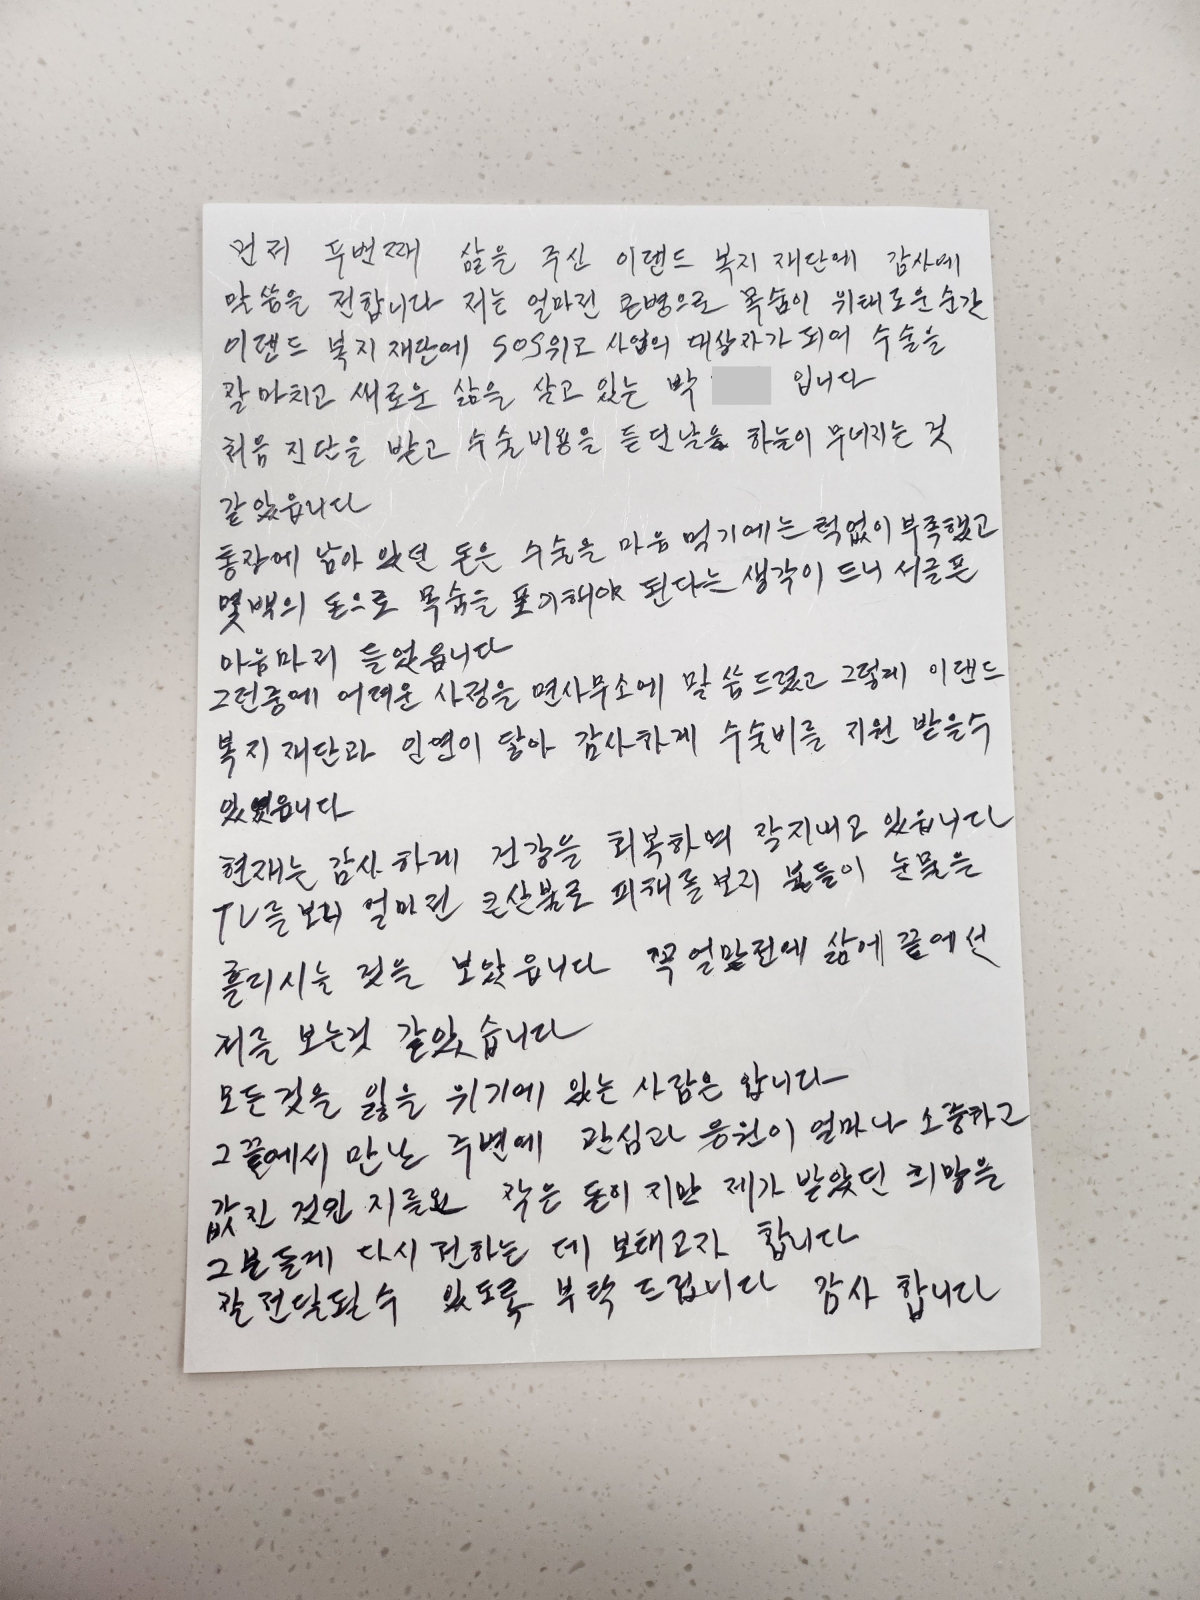 먼저 두번째 삶을 주신 이랜드 복지 재단에 감사에
말씀을 전합니다 저는 얼마전 큰병으로 목숨이 위태로운순간
이랜드 복지 재단에 SOS위고 사업의 대상자가 되어 수술을
잘 마치고 새로운 삶을 살고 있는 박 입니다
처음 진단을 받고 수술비용을 듣던날은 하늘이 무너지는 것
같았읍니다
통장에 남아 있던 돈은 수술을 마음 먹기에는 턱없이 부족했고
몇백의 돈으로 목숨을 포기해야 된다는 생각이 드니 서글픈
마음마저 들었읍니다
그런중에 어려운 사정을 면사무소에 말씀드렸고 그렇게 이랜드
복지 재단과 인연이 닿아 감사하게 수술비를 지원 받을수
있었읍니다
현재는 감사하게 건강을 회복하며 잘지내고 있읍니다
TV를보다 얼마전 큰산불로 피해를보지 분들이 눈물은
흘리시는 것을 보았읍니다 꼭 얼맘전에 삶에 끝에선
저를 보는것 같았습니다
모든것을 잃을 위기에 있는 사람은 압니다
그 끝에서 만난 주변에 관심과 응원이 얼마나 소중하고
값진 것인 지를요 작은 돈이 지만 제가 받았던 희망을
그분들게 다시 전하는 데 보태고자 합니다
잘 전달될수 있도록 부탁 드립니다 감사 합니다